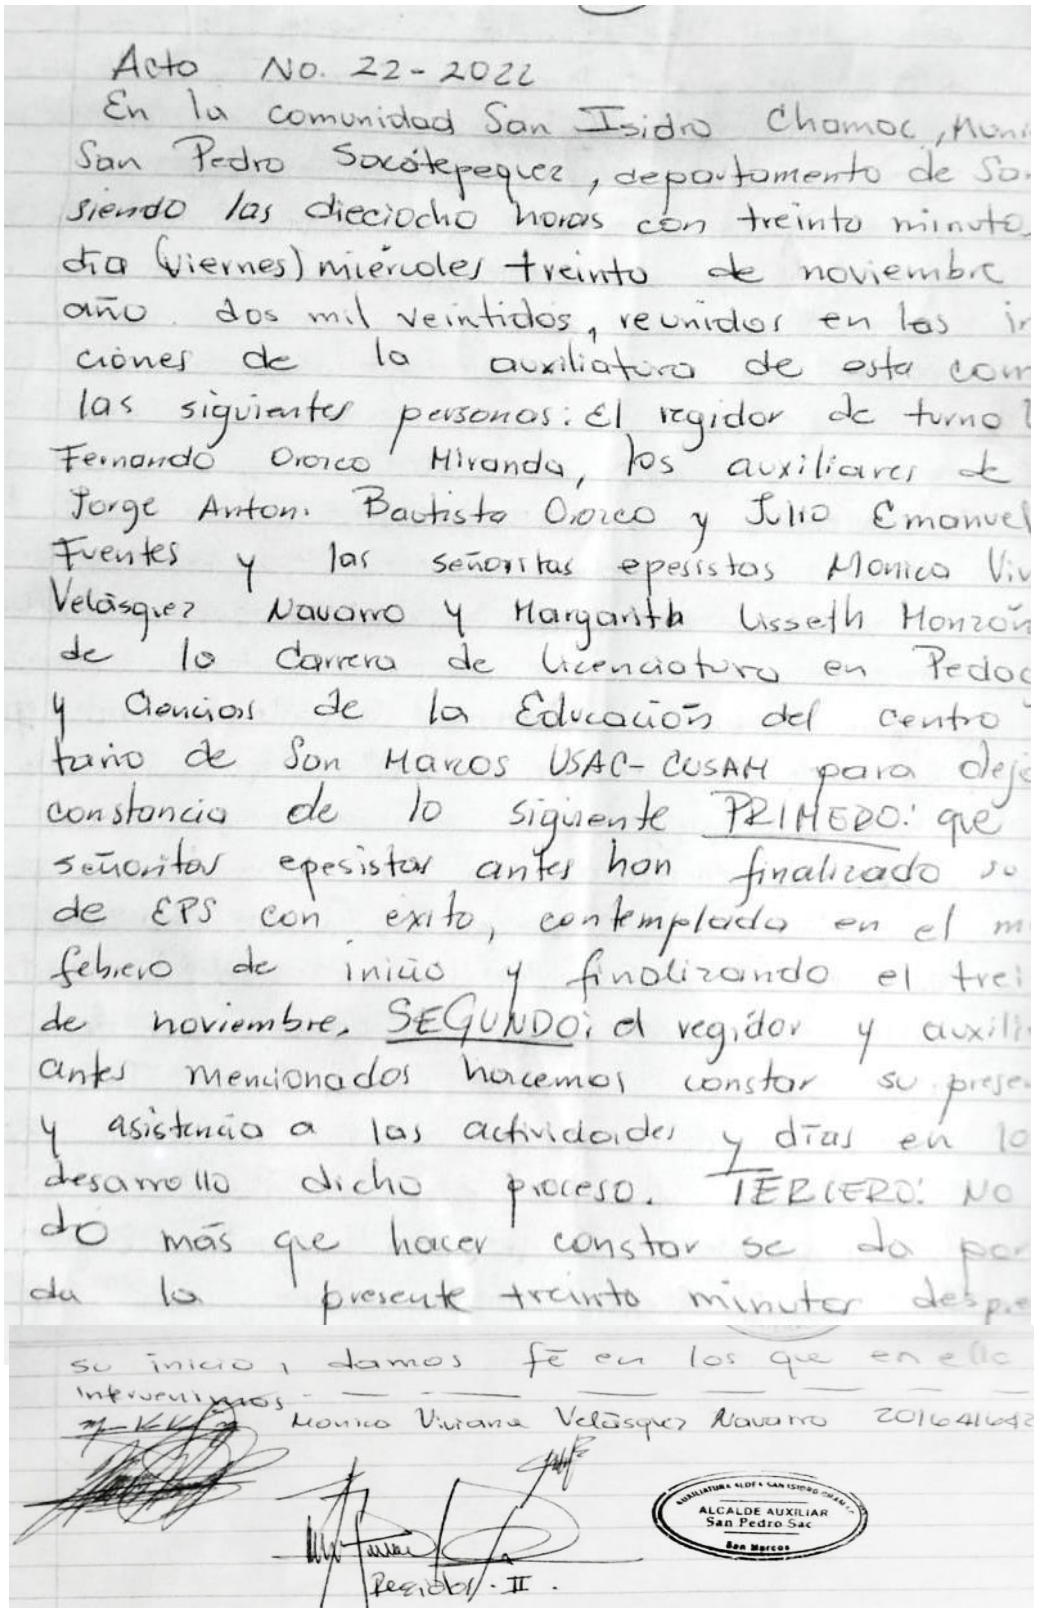 Acta No. 22-2022
En la comunidad San Isidro Chamac, Muni
San Pedro Sacatepequez, departamento de Sa
siendo las dieciocho horas con treinta minuto
dia (viernes) miércoles treinta de noviembre
año dos mil veintidos, reunidos en las in
ciones de la auxiliatura de esta com
las siguientes personas: El regidor de turno
Fernando Orozco Miranda, los auxiliares de
Jorge Antoni Bautista Orozco y Julio Emanuel
Fuentes y las señoritas epesistas Monica Viv
Velásquez Navarro y Margarith Lisseth Monzón
de la Carrera de Licenciatura en Pedag
y Ciencias de la Educación del centro
tario de San Marcos USAC-CUSAM para deja
constancia de lo siguiente PRIMERO: que
señoritas epesistas antes han finalizado su
de EPS con exito, contemplado en el m
febrero de inicio y finalizando el trei
de noviembre. SEGUNDO: el regidor y auxili
antes mencionados hacemos constar su prese
y asistencia a las actividades y días en lo
desarrollo dicho proceso. TERCERO: No
do más que hacer constar se da por
da la presente treinta minutos despue
su inicio, damos fé en los que en ella
intervenimos
Monica Viviana Velásquez Navarro 201641642
AUXILIATURA ALDEA SAN ISIDRO CHAMAC
ALCALDE AUXILIAR
San Pedro Sac
San Marcos
Regidor - II.